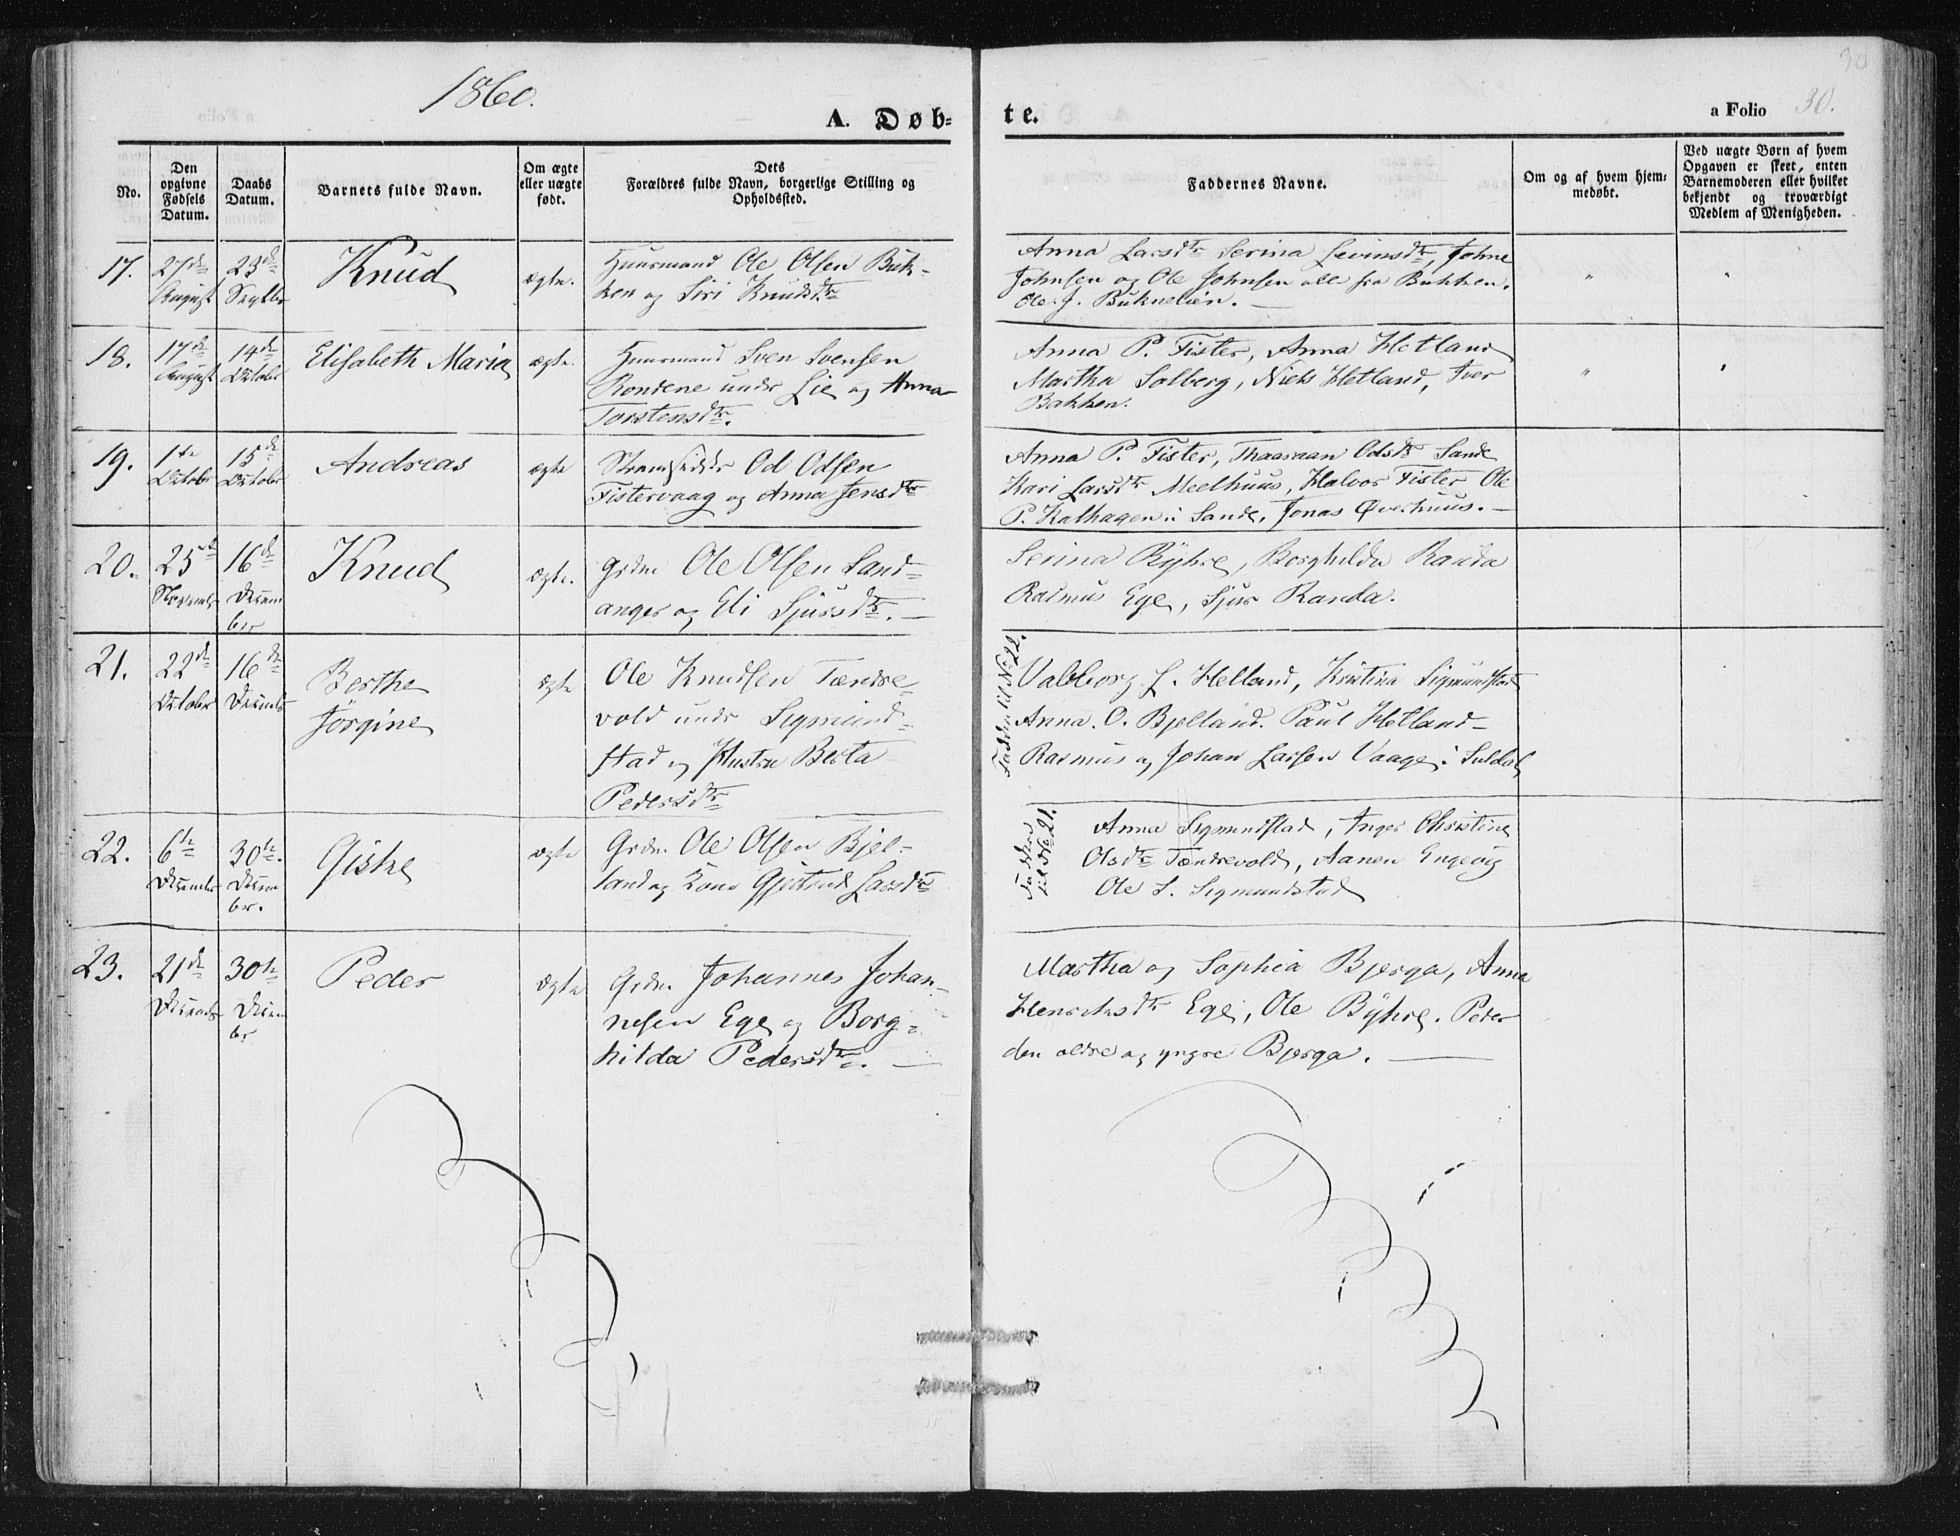 1860.
A. Døb-
te.
a Folio 30.
30
No.
Den
opgivne
Fødsels
Datum.
Daabs
Datum.
Barnets fulde Navn.
Om ægte
eller uægte
født.
Dets
Forældres fulde Navn, borgerlige Stilling og
Opholdssted.
Faddernes Navne.
Om og af hvem hjem-
medøbt.
Ved uægte Børn af hvem
Opgaven er skeet, enten
Barnemoderen eller hvilket
bekjendt og troværdigt
Medlem af Menigheden.
17.
27de
August
23de
Septbr
Knud
ægte.
Huusmand Ole Olsen Buk-
ken og Siri Knudsdtr
Anna Larsdtr Serina Levinsdtr, Johne
Johnsen og Ole Johnsen alle fra Bukken.
Ole J. Buknelien.
"
"
18.
17de
August
14de
October
Elisabeth Maria
ægte.
Huusmand Sven Svensen
Rondene under Lie og Anna
Torstensdtr.
Anna P. Fister, Anna Hetland
Martha Solberg, Niels Hetland, Iver
Bakken.
"
"
19.
1ste
October
15de
October
Andreas
ægte
Strandsidder Od Odsen
Fistervaag og Anna Jensdtr
Anna P. Fister, Thaaraan Odsdtr Sande
Kari Larsdtr Meelhuus, Halvor Fister Ole
P. Kalhagen i Sande, Jonas Øverhuus.
20.
25de
Novembr
16de
Decem
ber
Knud
ægte.
Grdm. Ole Olsen Sand-
anger og Eli Sjursdtr.
Serina Byhre, Borghilda Randa
Rasmus Ege, Sjur Randa.
21.
22de
October
16de
Decembr
Berthe
Jörgine
ægte
Ole Knudsen Tændre-
vold under Sigmund-
stad og Hustru Berta
Pedersdtr
Faddere til No 22.
Valborg L. Helland, Kristina Sigmundstad
Anna O. Bjelland. Paul Hetland
Rasmus og Johan Larsen Vaage i Suldal
22.
6te
December
30te
Decem
ber.
Giske
ægte
Grdm. Ole Olsen Bjel-
land og Kone Gjertrud Larsdtr
Faddere
til No 21.
Anna Sigmundstad, Inger Christine
Olsdtr Tændrevold, Aanen Engevig
Ole S. Sigmundstad
23.
21de
Decembr
30te
Decem
br
Peder
ægte
Grdm. Johannes Johan-
nesen Ege og Borg-
hilda Pedersdtr.
Martha og Sophia Bjerga, Anna
Henriksdtr Ege, Ole Byhre. Peder
den ældre og yngre Bjerga.